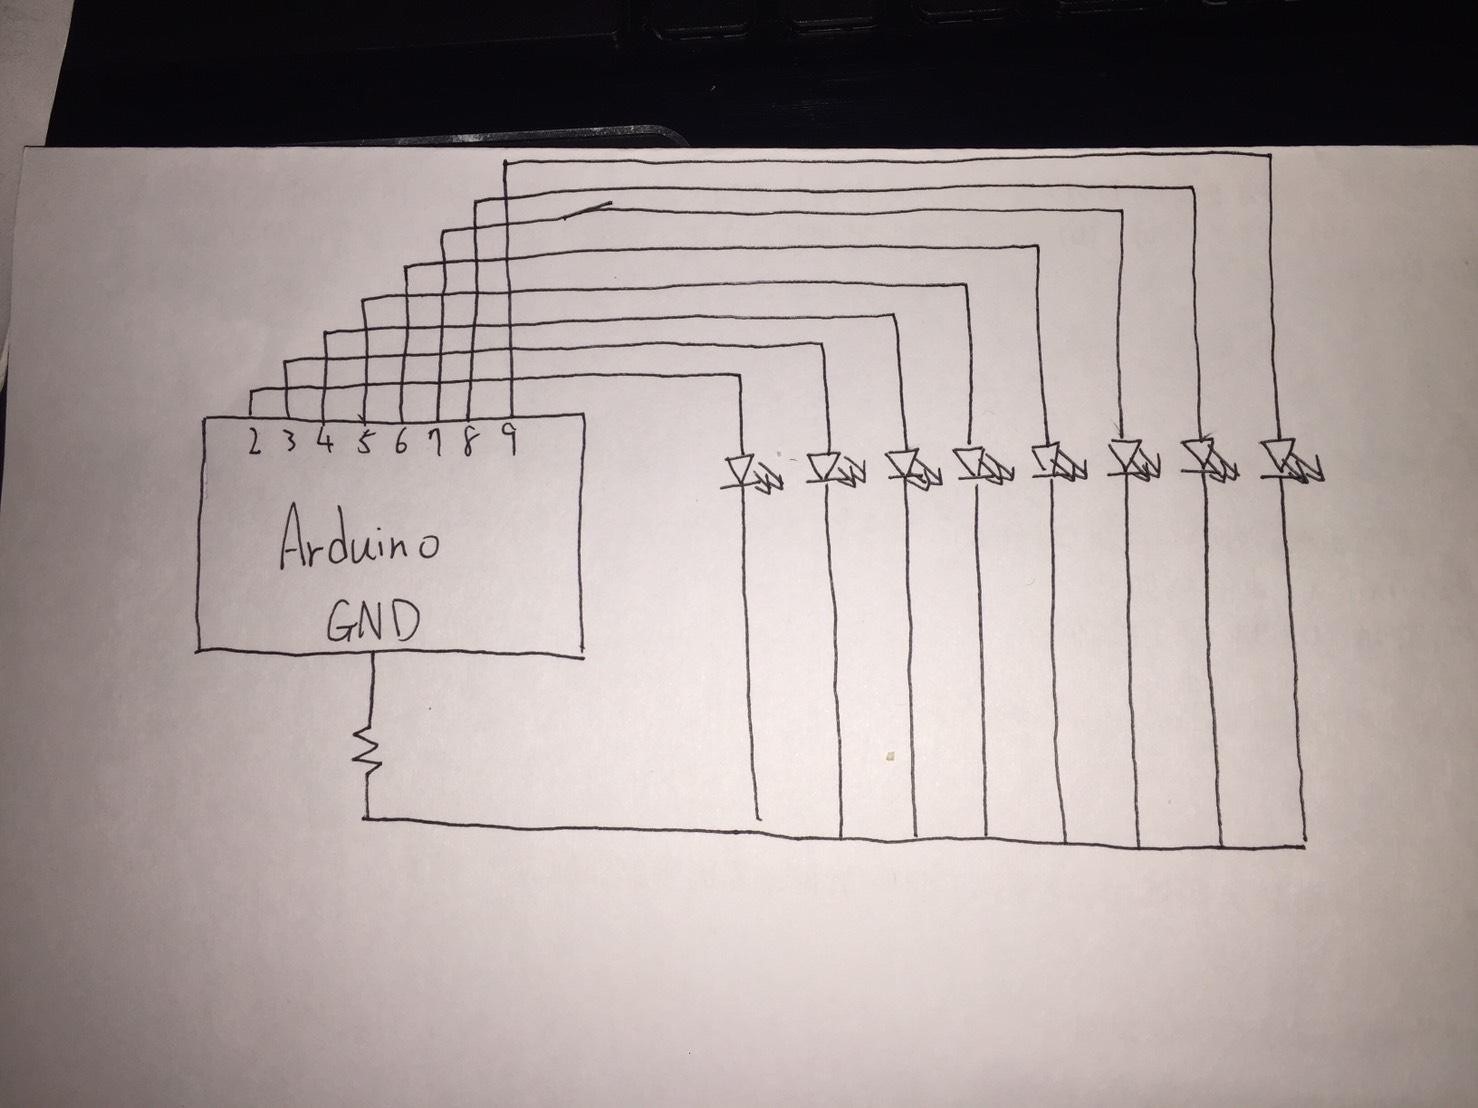 2 3 4 5 6 7 8 9
Arduino
GND